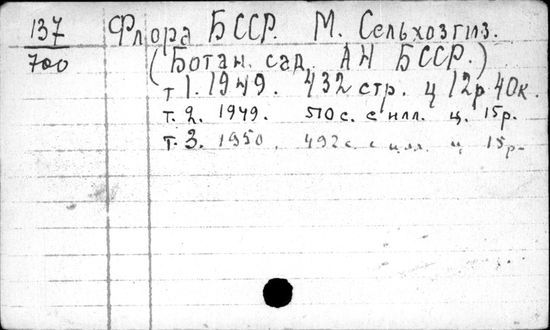 137 Флора БССР. М. Сельхозгиз.
700 (Ботан. сад. АН БССР.)
т 1. 1949. 432 стр. ц 12р 40к.
т. 2. 1949. 510 с. с илл. ц. 15р.
т. 3. 1950. 492 с. с илл. ц 15р.